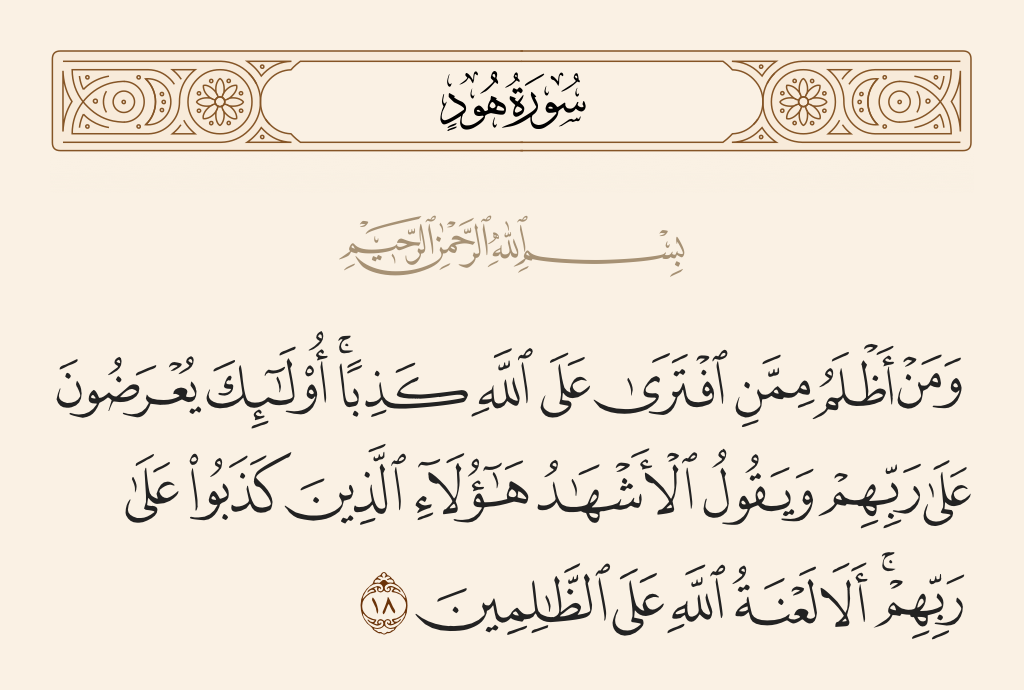 سُورَةُ هُودٍ
بِسْمِ ٱللَّهِ ٱلرَّحْمَٰنِ ٱلرَّحِيمِ
وَمَنْ أَظْلَمُ مِمَّنِ ٱفْتَرَىٰ عَلَى ٱللَّهِ كَذِبًا ۚ أُو۟لَـٰٓئِكَ يُعْرَضُونَ
عَلَىٰ رَبِّهِمْ وَيَقُولُ ٱلْأَشْهَـٰدُ هَـٰٓؤُلَآءِ ٱلَّذِينَ كَذَبُوا۟ عَلَىٰ
رَبِّهِمْ ۚ أَلَا لَعْنَةُ ٱللَّهِ عَلَى ٱلظَّـٰلِمِينَ ١٨